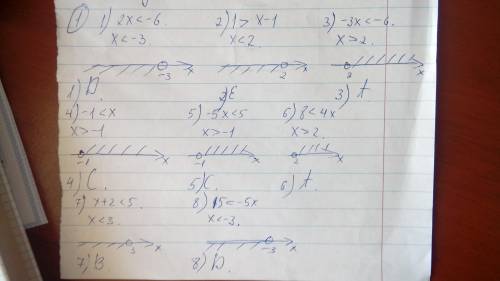 ① 1) 2x<-6. 2) 1> x-1 3) -3x<-6.
x<-3. x<2. x>2.
-3 x 2 x 2 x
1) D. 2) E 3) A.
4) -1<x 5) -5x<5 6) 8<4x
x>-1 x>-1 x>2.
-1 x -1 x 2 x
4) C. 5) C. 6) A.
7) x+2<5. 8) 15<-5x
x<3. x<-3.
3 x -3 x
7) B 8) D.